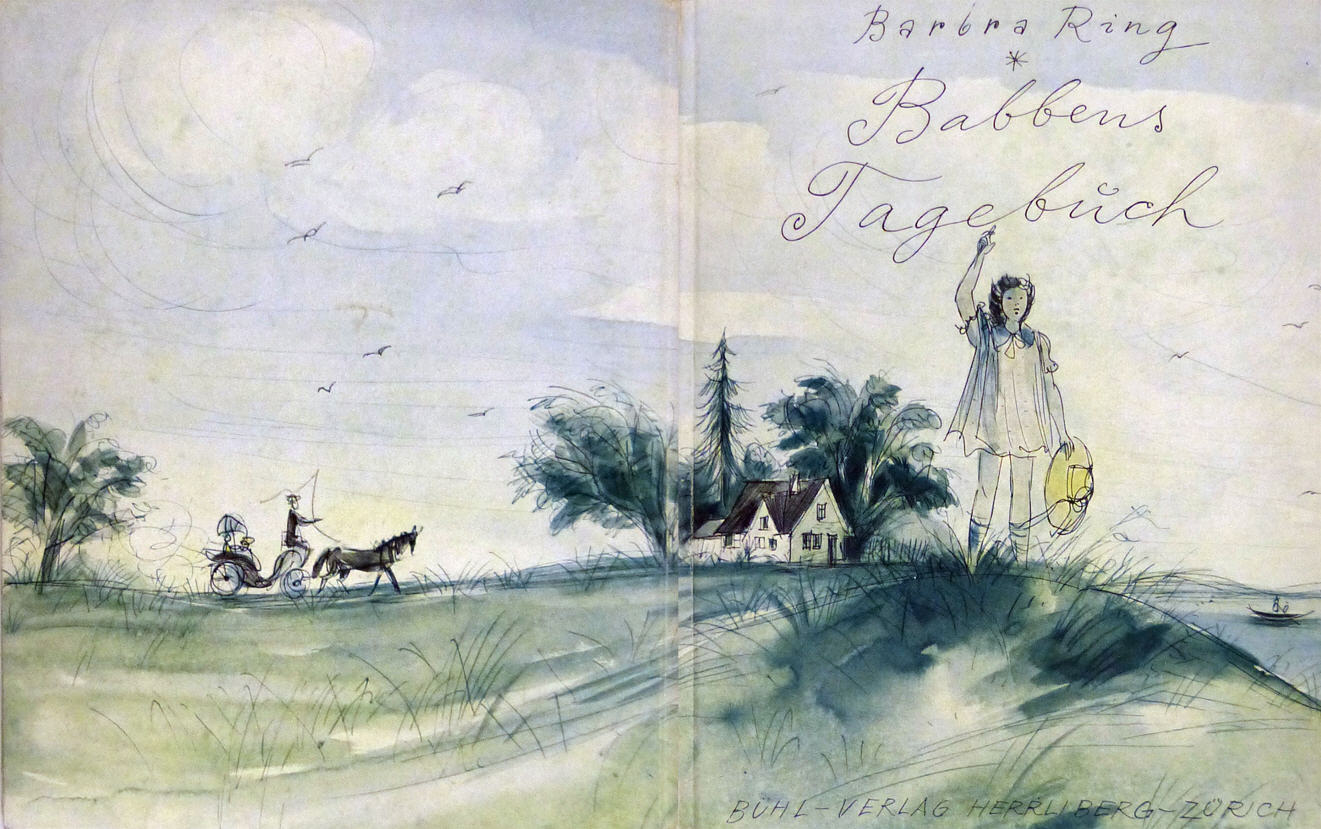 Barbra Ring
*
Babbens
Tagebuch
BÜHL-VERLAG HERRLIBERG-ZÜRICH